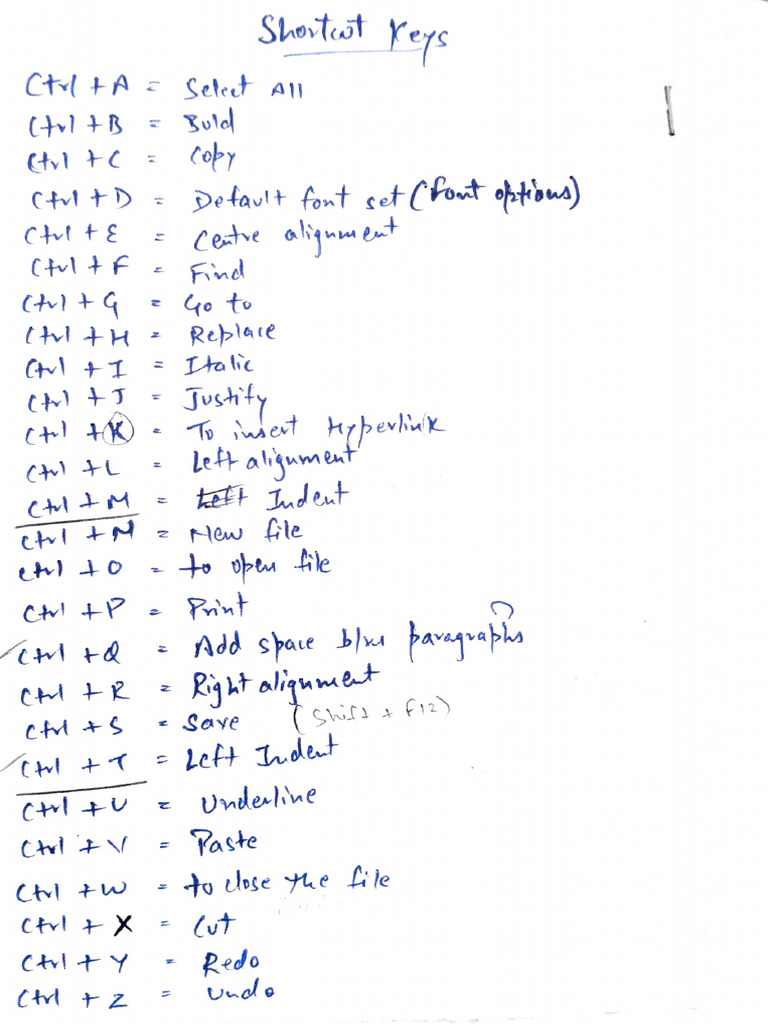 Shortcut Keys
Ctrl + A = Select All
Ctrl + B = Bold
Ctrl + C = Copy
Ctrl + D = Default font set (font options)
Ctrl + E = Centre alignment
Ctrl + F = Find
Ctrl + G = Go to
Ctrl + H = Replace
Ctrl + I = Italic
Ctrl + J = Justify
Ctrl + K = To insert Hyperlink
Ctrl + L = Left alignment
Ctrl + M = Left Indent
Ctrl + N = New file
Ctrl + O = to open file
Ctrl + P = Print
Ctrl + Q = Add space b/w paragraphs
Ctrl + R = Right alignment
Ctrl + S = Save (Shift + F12)
Ctrl + T = Left Indent
Ctrl + U = Underline
Ctrl + V = Paste
Ctrl + W = to close the file
Ctrl + X = Cut
Ctrl + Y = Redo
Ctrl + Z = Undo